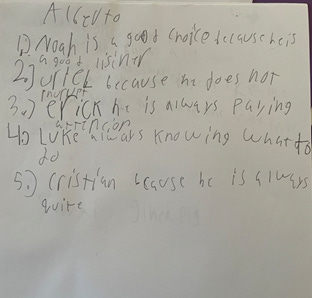 Alberto
1.) Noah is a good choice because he is
a good lisner
2.) urick because he does not
inurupt
3.) erick he is always paying
attencion
4.) Luke always knowing what to
do
5.) cristian because he is always
quite